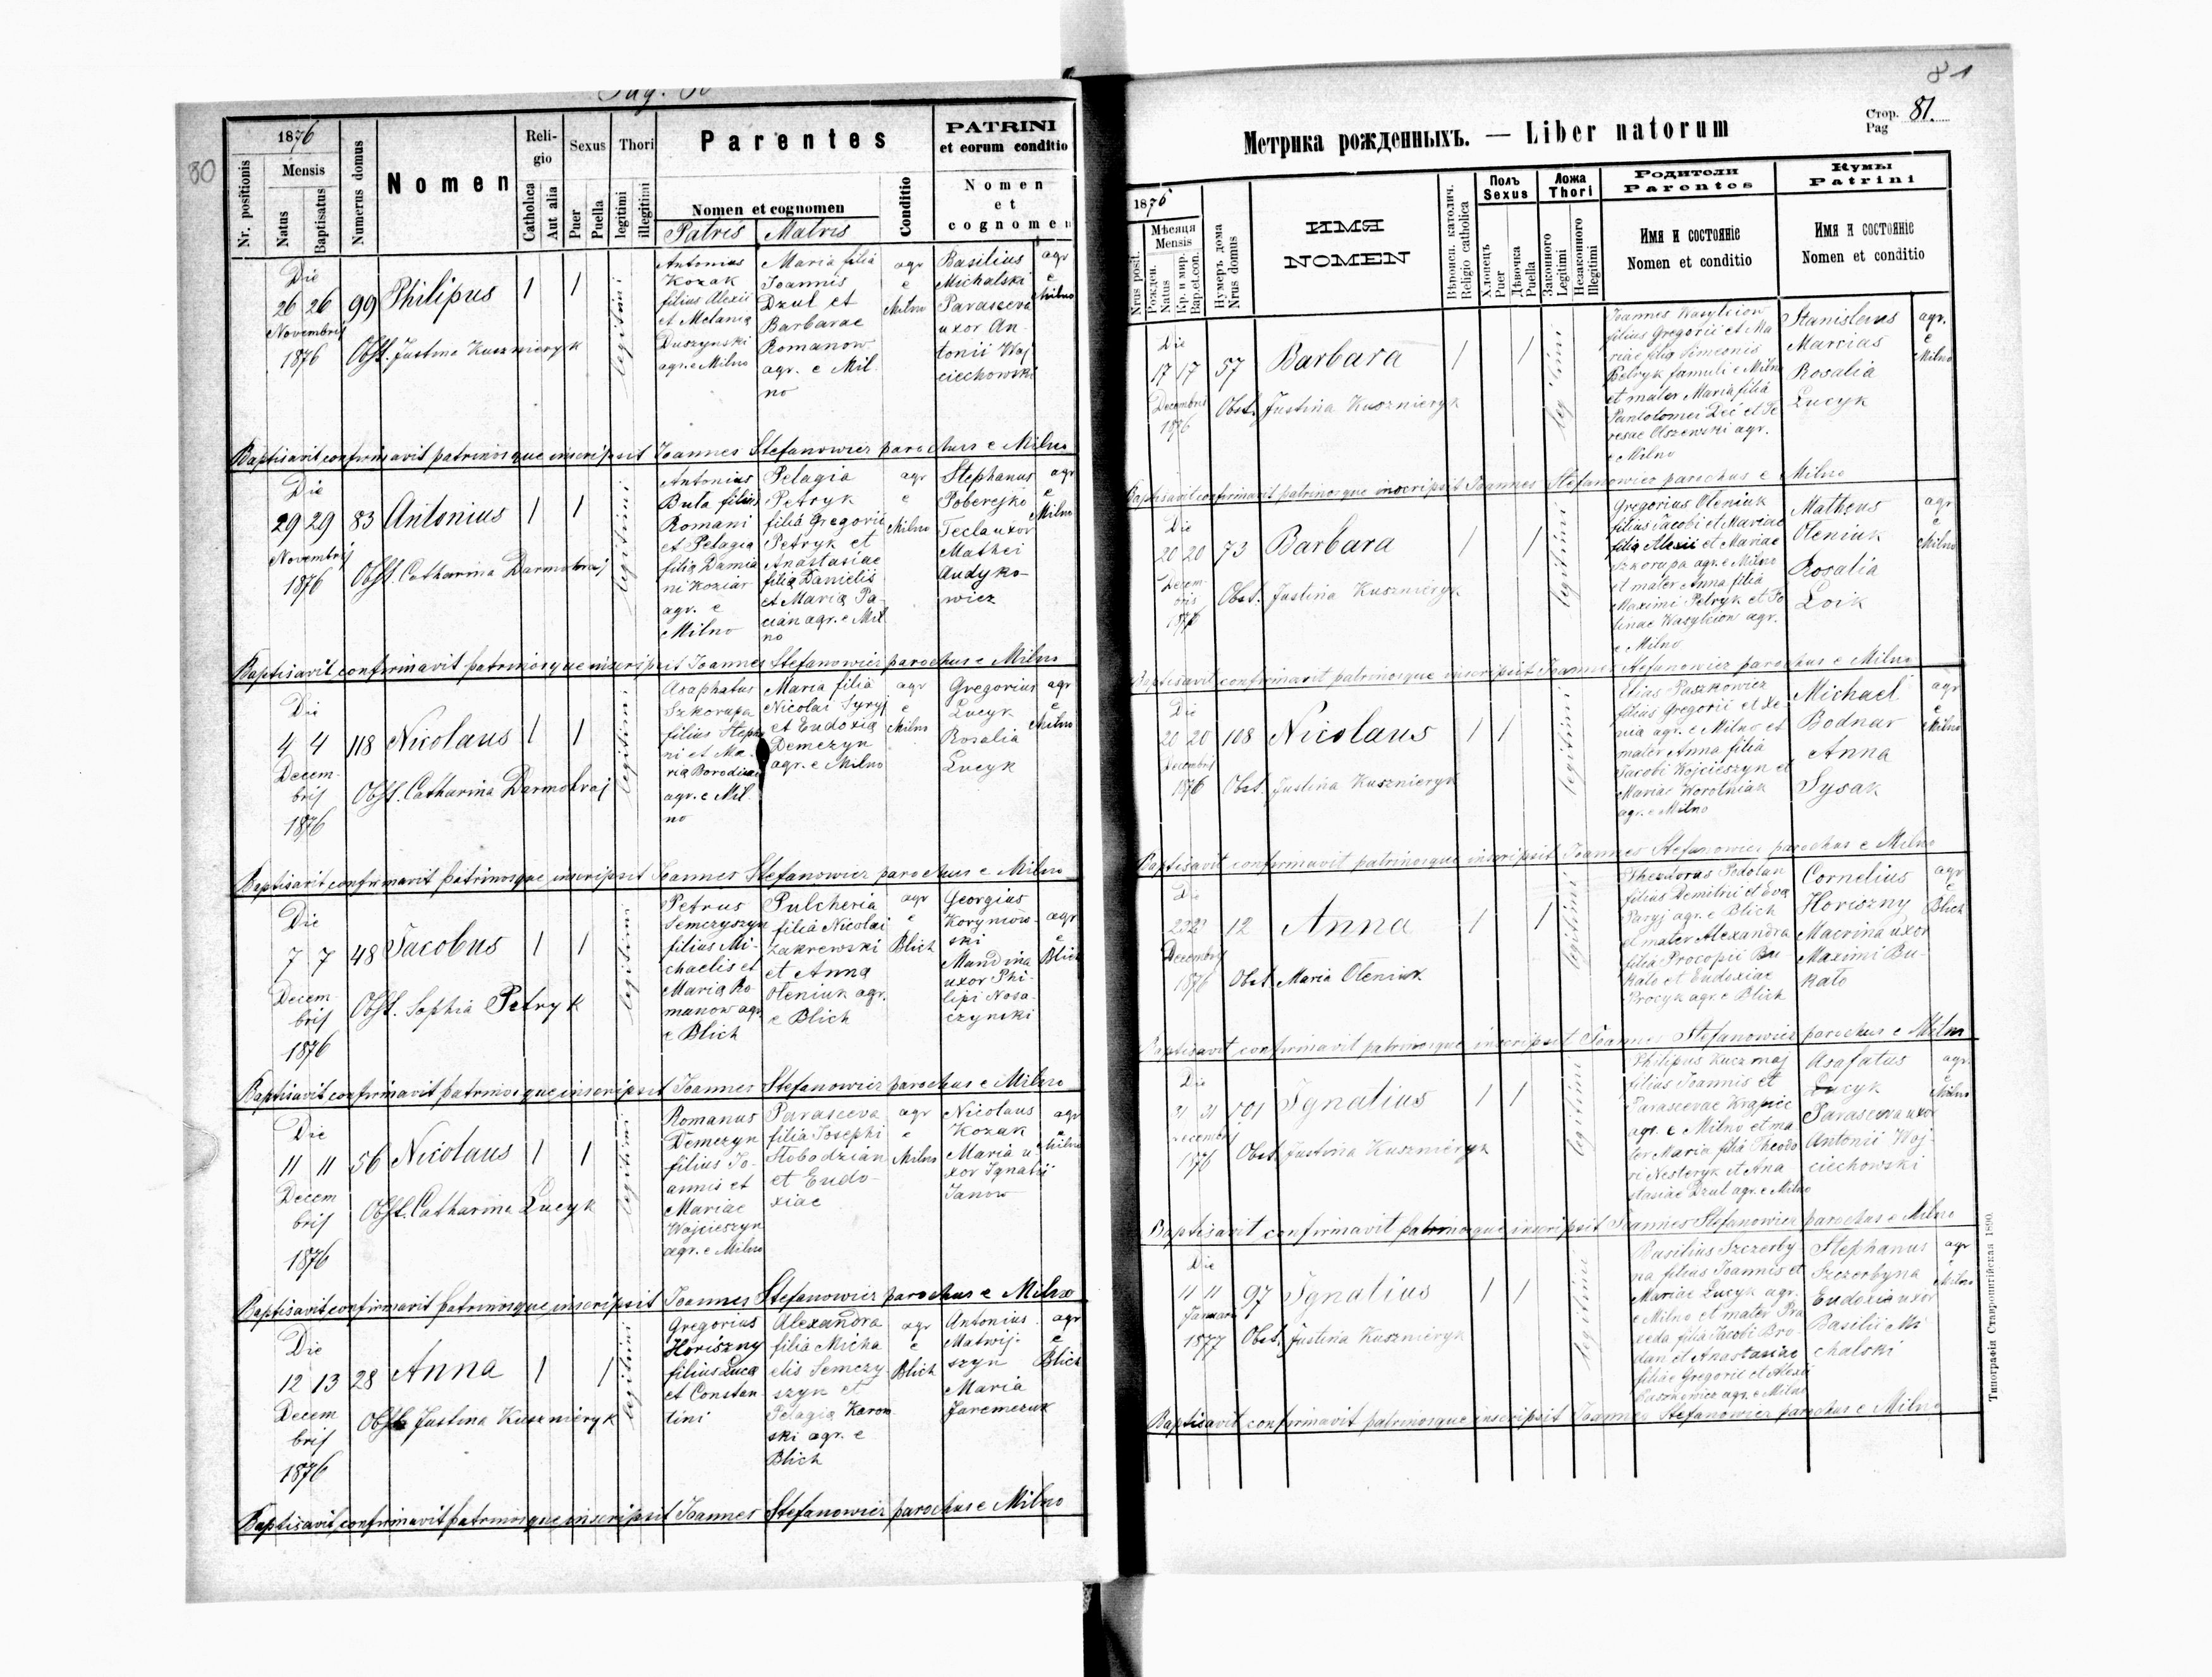 Pag. 80
80
1876
Nr. positionis
Mensis
Natus
Baptisatus
Numerus domus
Nomen
Reli-
gio
Catholica
Aut alia
Sexus
Puer
Puella
Thori
legitimi
illegitimi
Parentes
Nomen et cognomen
Patris Matris
Conditio
PATRINI
et eorum conditio
Nomen
et
cognomen
Die
26 26 99 Philipus 1 1 legitimi
Novembris
1876 Obst. Justina Kusznieryk
Antonius
Kozak
filius Alexii
et Melania
Duszynski
agr. e Milno
Maria filia
Joannis
Dzul et
Barbarae
Romanow
agr. e Mil
no
agr
e
Milno
Basilius
Michalski
Parasceva
uxor An-
tonii Woj
ciechowski
agr
e
Milno
Baptisavit confirmavit patrinosque inscripsit Joannes Stefanowicz parochus e Milno
Die
29 29 83 Antonius 1 1 legitimi
Novembris
1876 Obst. Catharina Darmohraj
Antonius
Buta filius
Romani
et Pelagia
filia Damia
ni Koziar
agr. e
Milno
Pelagia
Petryk
filia Gregorii
Petryk et
Anastasiae
filia Danielis
et Maria Pa
cian agr. e Mil
no
agr
e
Milno
Stephanus
Poberejko
Tecla uxor
Mathei
Andyko-
wicz
agr
e
Milno
Baptisavit confirmavit patrinosque inscripsit Joannes Stefanowicz parochus e Milno
Die
4 4 118 Nicolaus 1 1 legitimi
Decem-
bris
1876
Obst. Catharina Darmohraj
Asaphatus
Szkorupa
filius Stepha
ni et Ma-
ria
agr. e Mil
no
Maria filia
Nicolai Syryj
et Eudoxia
Demczyn
agr. e Milno
agr
e
Milno
Gregorius
Lucyk
Rosalia
Lucyk
agr
e
Milno
Baptisavit confirmavit patrinosque inscripsit Joannes Stefanowicz parochus e Milno
Die
7 7 48 Jacobus 1 1 legitimi
Decem-
bris
1876
Obst. Sophia Petryk
Petrus
Semczyszyn
filius Mi-
chaelis et
Maria Ro-
manow agr.
e Blich
Pulcheria
filia Nicolai
Zakrewski
et Anna
Oleniuk agr.
e Blich
agr
e
Blich
Georgius
Korgniow-
ski
Mandina
uxor Phi-
lipi Nosa-
czynski
agr
e
Blich
Baptisavit confirmavit patrinosque inscripsit Joannes Stefanowicz parochus e Milno
Die
11 11 56 Nicolaus 1 1 legitimi
Decem
bris
1876
Obst. Catharina Lucyk
Romanus
Demczyn
filius Jo-
annis et
Mariae
Wojcieszyn
agr. e Milno
Parasceva
filia Josephi
Slobodzian
et Eudo-
xiae
agr
e
Milno
Nicolaus
Kozak
Maria u-
xor Ignatii
Janow
agr
e
Milno
Baptisavit confirmavit patrinosque inscripsit Joannes Stefanowicz parochus e Milno
Die
12 13 28 Anna 1 1 legitimi
Decem
bris
1876
Obst. Justina Kusznieryk
Gregorius
Horiszny
filius Luca
et Constan-
tini
Alexandra
filia Micha
elis Semczy-
szyn et
Pelagia Karow
ski agr. e
Blich
agr
e
Blich
Antonius
Matwij-
szyn
Maria
Jaremczuk
agr
e
Blich
Baptisavit confirmavit patrinosque inscripsit Joannes Stefanowicz parochus e Milno
81
Стор.
Pag 81.
Метрика рожденныхъ. — Liber natorum
1876
Nrus posit.
Мѣсяця
Mensis
Рожден.
Natus
Кр. и мир.
Bap.et.con.
Нумеръ дома
Nrus domus
ИМЯ
NOMEN
Вѣроисп. католич.
Religio catholica
Полъ
Sexus
Хлопецъ
Puer
Дѣвочка
Puella
Ложа
Thori
Законного
Legitimi
Незаконного
Illegitimi
Родители
Parentes
Имя и состояніе
Nomen et conditio
Кумы
Patrini
Имя и состояніе
Nomen et conditio
Die
17 17 57 Barbara 1 1 legitimi
Decembris
1876
Obst. Justina Kusznieryk
Joannes Wasylciow
filius Gregorii et Ma
riae filia Simeonis
Petryk famuli e Milno
et mater Maria filia
Pantolomei Dec et Te
resae Olszewski agr.
e Milno
Stanislaus
Marcias
Rosalia
Lucyk
agr.
e
Milno
Baptisavit confirmavit patrinosque inscripsit Joannes Stefanowicz parochus e Milno
Die
20 20 73 Barbara 1 1 legitimi
Decem-
bris
1876
Obst. Justina Kusznieryk
Gregorius Oleniuk
filius Jacobi et Mariae
filia Alexii et Mariae
Szkorupa agr. e Milno
et mater Anna filia
Maximi Petryk et Po
linae Wasylciow agr.
e Milno
Matheus
Oleniuk
Rosalia
Loik
agr
e
Milno
Baptisavit confirmavit patrinosque inscripsit Joannes Stefanowicz parochus e Milno
Die
20 20 108 Nicolaus 1 1 legitimi
Decembris
1876
Obst. Justina Kusznieryk
Elias Paszkowicz
filius Gregorii et Xe-
nia agr. e Milno et
mater Anna filia
Jacobi Wojcieszyn et
Mariae Worotniak
agr. e Milno
Michael
Bodnar
Anna
Sysak
agr
e
Milno
Baptisavit confirmavit patrinosque inscripsit Joannes Stefanowicz parochus e Milno
Die
22 22 12 Anna 1 1 legitimi
Decembris
1876
Obst. Maria Oleniuk
Theodorus Podolan
filius Demitrii et Eva
Paryj agr. e Blich
et mater Alexandra
filia Procopii Bu
kato et Eudoxiae
Procyk agr. e Blich
Cornelius
Horiszny
Macrina uxor
Maximi Bu-
kato
agr
e
Blich
Baptisavit confirmavit patrinosque inscripsit Joannes Stefanowicz parochus e Milno
Die
31 31 101 Ignatius 1 1 legitimi
Decembris
1876
Obst. Justina Kusznieryk
Philipus Kuczmaj
filius Joannis et
Parascevae Krapiec
agr. e Milno et ma
ter Maria filia Theodo
ri Nesteryk et Ana-
stasiae Dzul agr. e Milno
Asafatus
Lucyk
Parasceva uxor
Antonii Woj-
ciechowski
agr.
e
Milno
Baptisavit confirmavit patrinosque inscripsit Joannes Stefanowicz parochus e Milno
Die
11 11 97 Ignatius 1 1 legitimi
Januarii
1877 Obst. Justina Kusznieryk
Basilius Szczerby-
na filius Joannis et
Mariae Lucyk agr.
e Milno et mater Pra
xeda filia Jacobi Bro-
dan et Anastasiae
filiae Gregorii et Alexii
agr. e Milno
Stephanus
Szczerbyna
Eudoxia uxor
Basilii Mi
chalski
agr
e
Milno
Baptisavit confirmavit patrinosque inscripsit Joannes Stefanowicz parochus e Milno
Типографія Ставропигійская 1890.